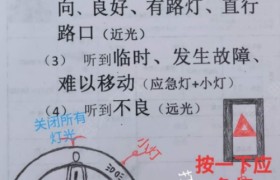 向、良好、有路灯、直行
路口（近光）
（3） 听到临时、发生故障、
难以移动（应急灯+小灯）
（4） 听到不良（远光）
关闭所有
灯光
小灯
按一下应